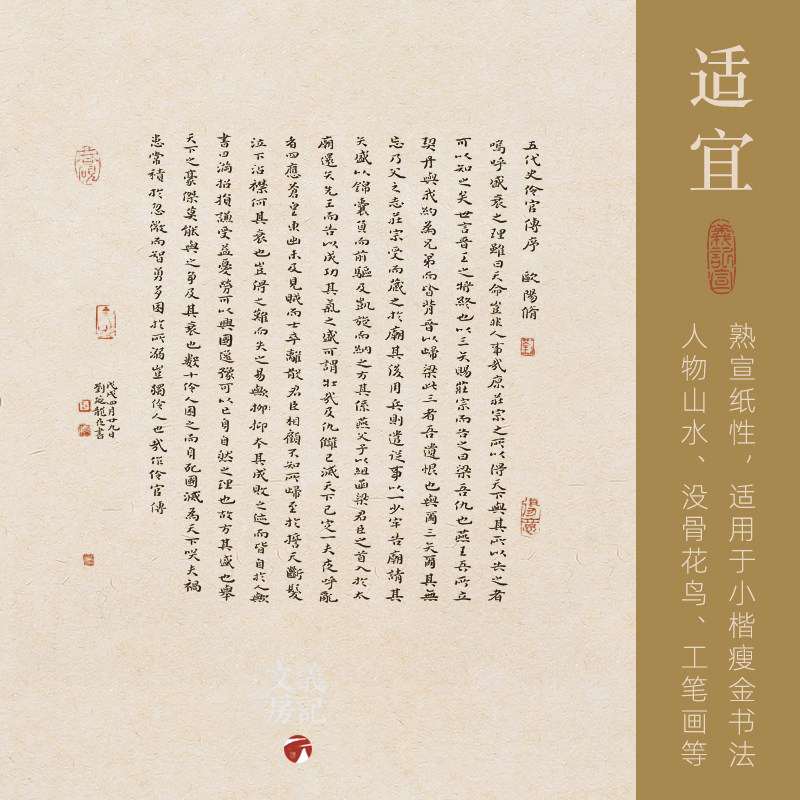 适宜
義記宣
熟宣纸性，适用于小楷瘦金书法
人物山水、没骨花鸟、工笔画等
五代史伶官傳序 歐陽脩
嗚呼盛衰之理雖曰天命豈非人事哉原莊宗之所以得天下與其所以失之者
可以知之矣世言晉王之將終也以三矢賜莊宗而告之曰梁吾仇也燕王吾所立
契丹與我約為兄弟而皆背晉以歸梁此三者吾遺恨也與爾三矢爾其無
忘乃父之志莊宗受而藏之於廟其後用兵則遣從事以一少牢告廟請其
矢盛以錦囊負而前驅及凱旋而納之方其係燕父子以組函梁君臣之首入於太
廟還矢先王而告以成功其氣之盛可謂壯哉及仇讎已滅天下已定一夫夜呼亂
者四應蒼皇東出未及見賊而士卒離散君臣相顧不知所歸至於誓天斷髮
泣下沾襟何其衰也豈得之難而失之易歟抑抑本其成敗之迹而皆自於人歟
書曰滿招損謙受益憂勞可以興國逸豫可以亡身自然之理也故方其盛也舉
天下之豪傑莫能與之爭及其衰也數十伶人困之而身死國滅為天下笑夫禍
患常積於忽微而智勇多困於所溺豈獨伶人也哉作伶官傳
戊戌四月廿九日
義記
文房